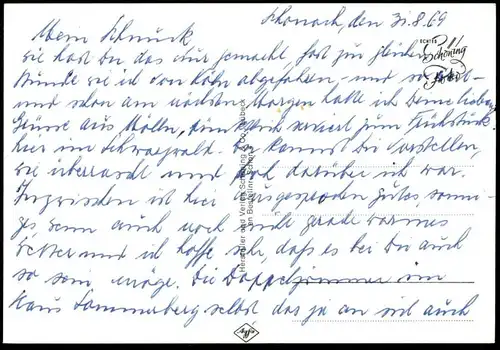 Schonach, den 31.8.69
Mein Schnuck
wie hast Du das nur gemacht fast zur gleichen
Stunde wie ich von Köln abgefahren - und
und schon am nächsten Morgen hatte ich Deine lieben
Grüsse aus Mölln, serviert zum Frühstück
hier im Schwarzwald. Du kannst Dir vorstellen,
wie überrascht und froh darüber ich war.
Inzwischen ist hier ausgesprochen gutes, sonni-
ges, wenn auch noch nicht gerade warmes
Wetter und ich hoffe sehr, daß es bei Du auch
so sein möge. Die Doppelzimmer im
Haus Sommerberg selbst das ja an und auch
ECHTES
Schöning
Foto
Hersteller und Verlag Schöning & Co., Lübeck
Agfa